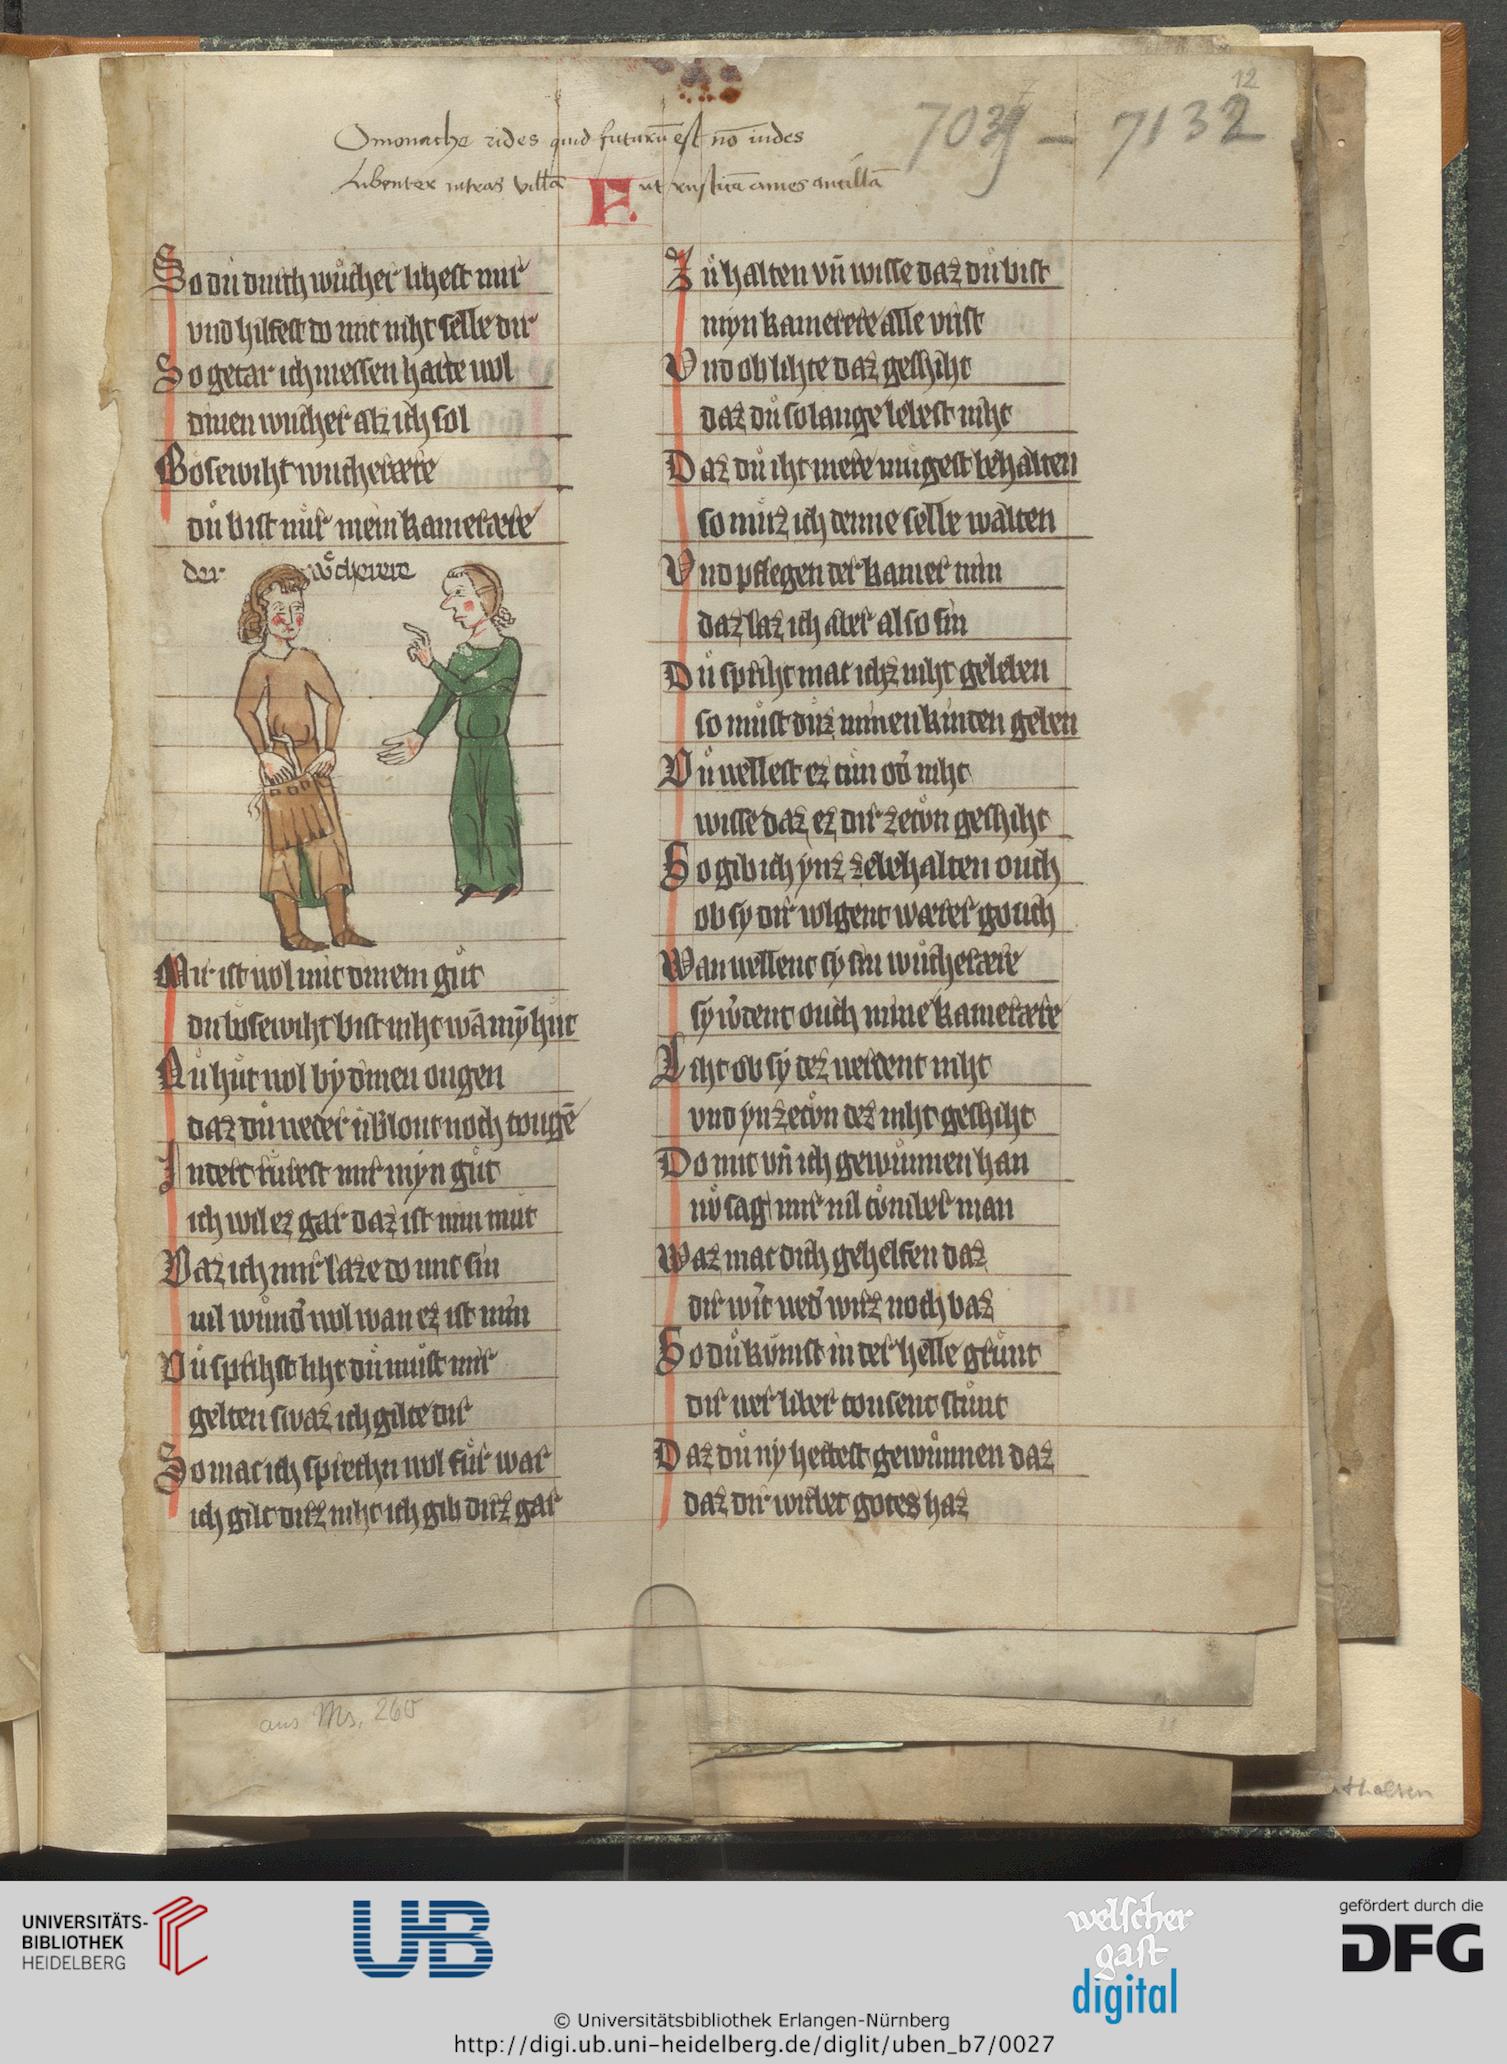 12
7039 – 7132
O monache rides quid futurū est nō uides
Lubenter intras villā Et ut rusticā ames ancillā
F.
So dů durch wůcher lihest mir
vnd hilfest do mit niht selbe dir
So getar ich messen harte wol
dinen wůcher als ich sol
Bosewiht wucherære
dů bist mir mein kameræree
der wǒcherere
Mir ist wol mit dinem gůt
du bosewiht bist niht wā mȳ hůt
Nů hůt wol by dinen ougen
daz dů weder ůblout noch tougē
Inder růrest mir myn gůt
ich wil ez gar daz ist min můt
Daz ich mir laze do mit sin
vil wund' wol wan ez ist min
Dů sprihst liht dů můst mir
gelten swaz ich gilte dir
So mac ich sprechn wol fůr war
ich gilt dirz niht ich gib dirz gar
Zů halten vn̄ wisse daz dů bist
myn kamerere alle vrist
Vnd ob lihte daz geschiht
daz dů so lange lebest niht
Daz dů iht mere můgest behalten
so můz ich denne selbe walten
Vnd pflegen der kamer min
daz laz ich aber also sin
Dů spriht mac ichz niht geleben
so můst důz minen kinden geben
Dů wellest ez tůn od' niht
wisse daz ez dir zetǒn geschiht
So gib ich ynz zebehalten ouch
ob sy dir volgent wærer gouch
Wan wellent sy sin wůcherære
sy w'dent ouch mine kameræree
Liht ob sy dez werdent niht
vnd yn zetǒn dez niht geschiht
Do mit vn̄ ich gewůnnen han
nů sag mir vil tǒmber man
Waz mac dich gehelfen daz
dir wirt wed' wirz noch baz
So dů kůmst in der helle grůnt
dir wer lieber tousent stůnt
Daz dů ny hettest gewůnnen daz
daz dir wirbet gotes haz
aus Ms. 260
11
UNIVERSITÄTS-
BIBLIOTHEK
HEIDELBERG
UB
welscher
gast
digital
gefördert durch die
DFG
© Universitätsbibliothek Erlangen-Nürnberg
http://digi.ub.uni-heidelberg.de/diglit/uben_b7/0027